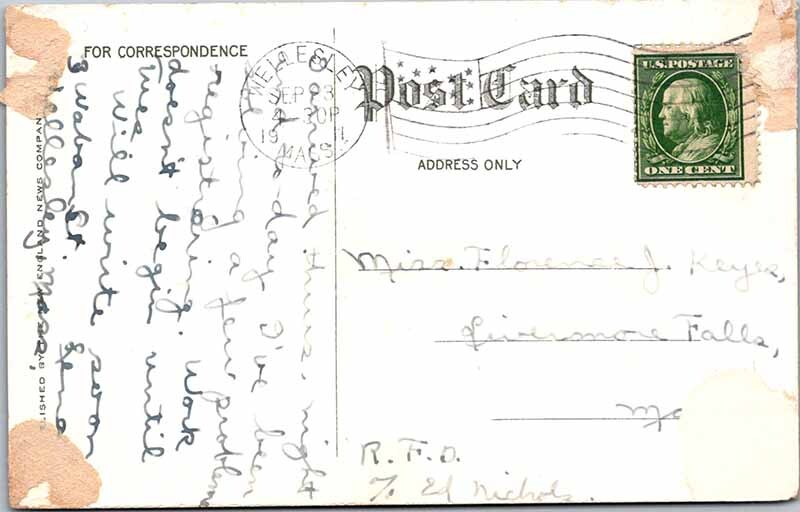 FOR CORRESPONDENCE
WELLESLEY
SEP 23
4-30P
MASS.
Post Card
ADDRESS ONLY
U.S. POSTAGE
ONE CENT
Miss. Florence J. Keyes,
Livermore Falls,
Me
R.F.D.
% Ed Nichols.
arrived thurs. night
day I've been
a few problems
registering. Work
doesn't begin until
Tues will write soon
3 Waban St. Lena
Wellesley, Mass.
LISHED BY ENGLAND NEWS COMPAN